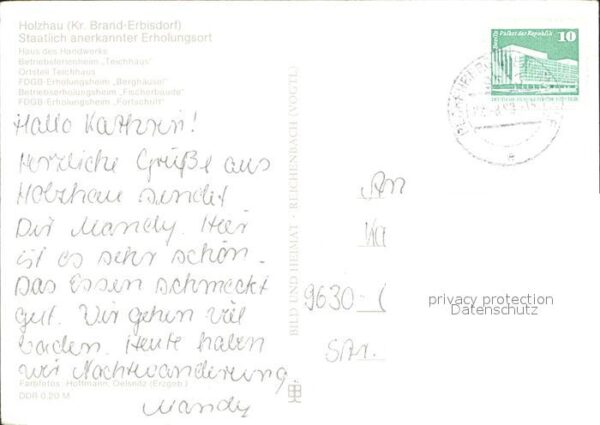 Holzhau (Kr. Brand-Erbisdorf)
Staatlich anerkannter Erholungsort
Haus des Handwerks
Betriebsferienheim „Teichhaus"
Ortsteil Teichhaus
FDGB-Erholungsheim „Berghäusel"
Betriebserholungsheim „Fischerbaude"
FDGB-Erholungsheim „Fortschritt"
Hallo Kathrin!
Herzliche Grüße aus
Holzhau sendet
Dir Mandy. Hier
ist es sehr schön.
Das Essen schmeckt
gut. Wir gehen viel
baden. Heute haben
wir Nachtwanderung.
Mandy
Farbfotos: Hoffmann, Oelsnitz (Erzgeb.)
DDR 0,20 M
BILD UND HEIMAT · REICHENBACH (VOGTL)
Berlin Palast der Republik
10
An
Ka
9630
Str.
privacy protection
Datenschutz